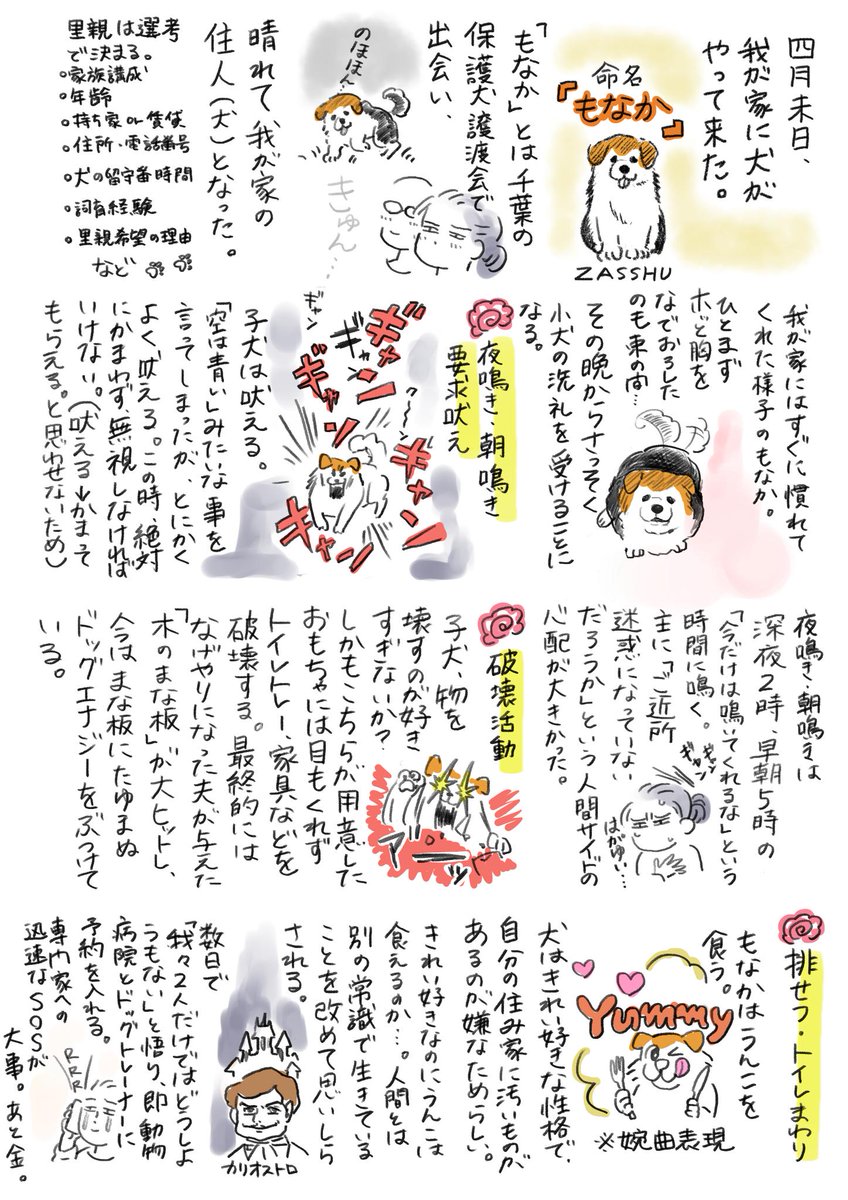 四月末日、
我が家に犬が
やって来た。
命名
『もなか』
ZASSHU
「もなか」とは千葉の
保護犬譲渡会で
出会い、
のほほん…
きゅん…
晴れて我が家の
住人(犬)となった。
里親は選考
で決まる。
•家族構成
•年齢
•持ち家or賃貸
•住所・電話番号
•犬の留守番時間
•飼育経験
•里親希望の理由
など
我が家にはすぐに慣れて
くれた様子のもなか。
ひとまず
ホッと胸を
なでおろした
のも束の間…
その晩からさっそく
小犬の洗礼を受けることに
なる。
夜鳴き、朝鳴き
要求吠え
ギャン
ギャン
ギャン
ギャン
ギャン
ギャン
クーン
子犬は吠える。
「空は青い」みたいな事を
言ってしまったが、とにかく
よく吠える。この時、絶対
にかまわず、無視しなければ
いけない。(吠える→かまって
もらえる。と思わせないため)
夜鳴き、朝鳴きは
深夜2時、早朝5時の
「今だけは鳴いてくれるな」という
時間に鳴く。
主に「ご近所
迷惑になっていない
だろうか」という人間サイドの
心配が大きかった。
ギャン
ギャン
はがゆい…
破壊活動
子犬、物を
壊すのが好き
すぎないか?
しかもこちらが用意した
おもちゃには目もくれず
トイレトレー、家具などを
破壊する。最終的には
なげやりになった夫が与えた
「木のまな板」が大ヒットし、
今はまな板にたゆまぬ
ドッグエナジーをぶつけて
いる。
アーーッ
排せつ・トイレまわり
もなかはうんこを
食う。
Yummy
※婉曲表現
犬はきれい好きな性格で、
自分の住み家に汚いものが
あるのが嫌なためらしい。
きれい好きなのにうんこは
食えるのか…。人間とは
別の常識で生きている
ことを改めて思いしら
される。
カリオストロ
数日で
「我々2人だけではどうしよ
うもない」と悟り、即動物
病院とドッグトレーナーに
予約を入れる。
専門家への
迅速なSOSが
大事。あと金。
RRR